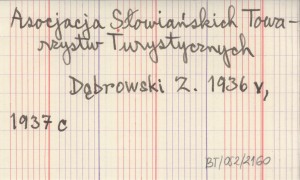 Asocjacja Słowiańskich Towa-
rzystw Turystycznych
Dąbrowski Z. 1936 v,
1937 c
BT/002/2160